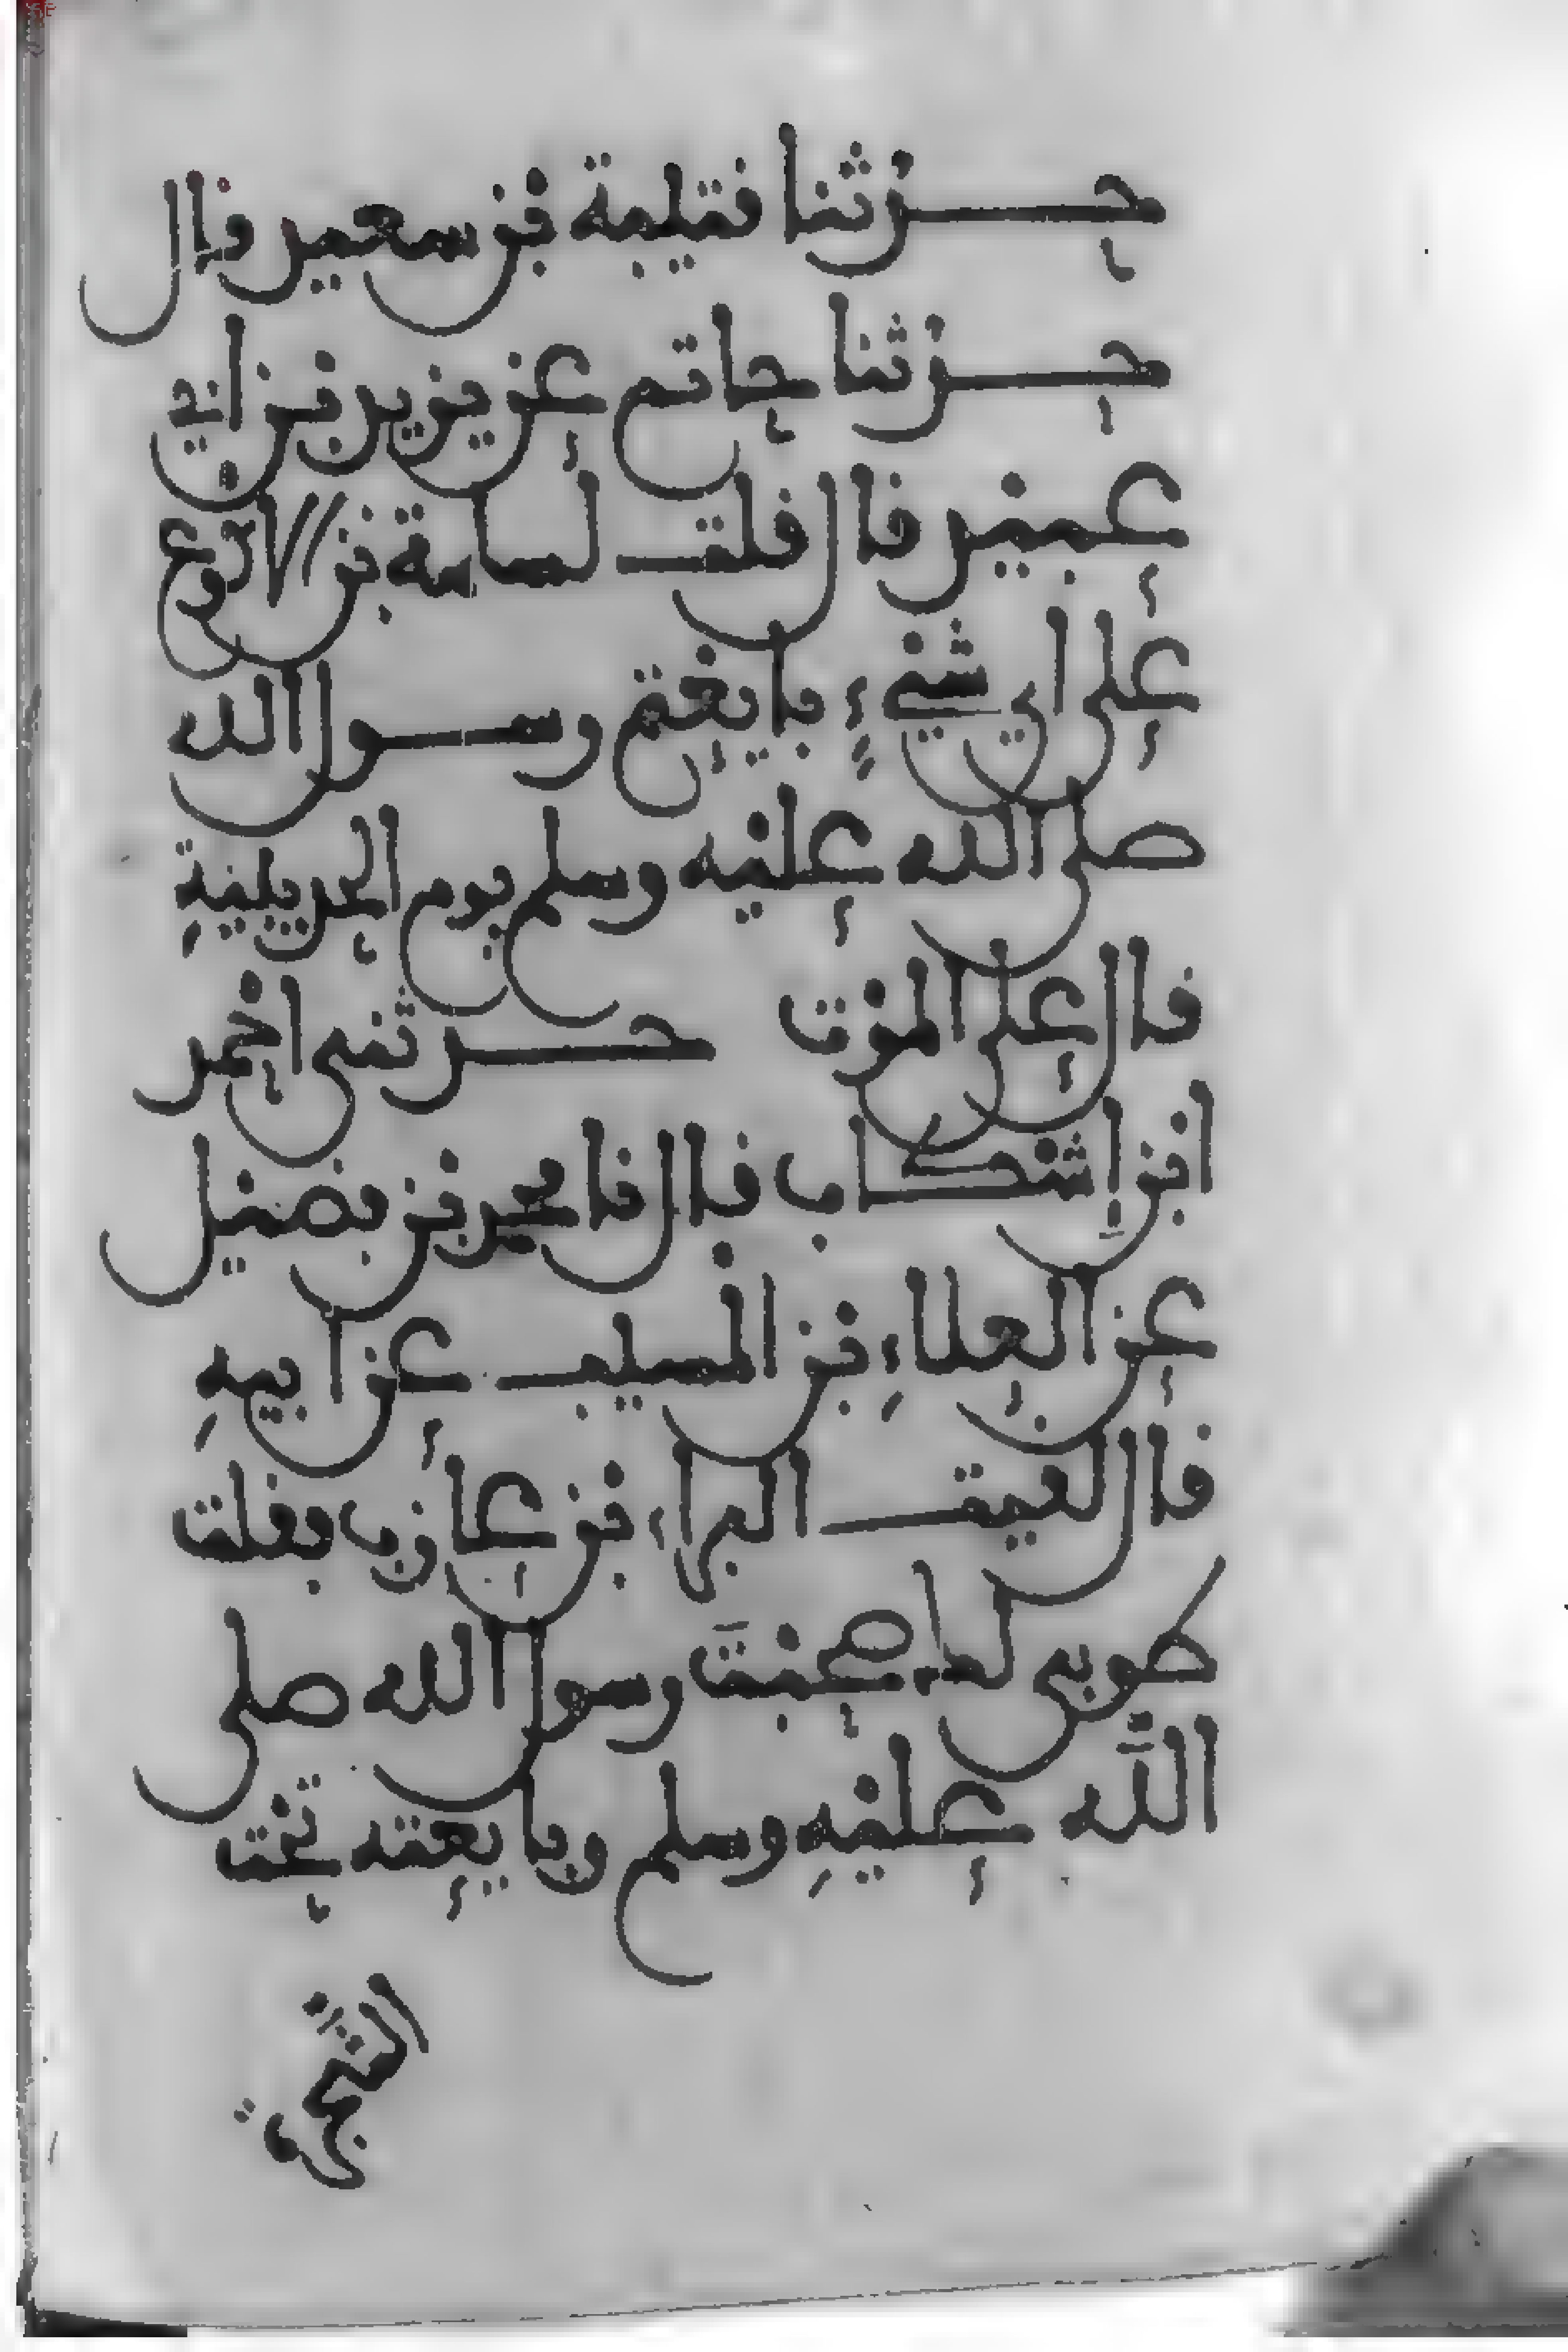 حدثنا قتيبة بن سعيد قال
حدثنا حاتم عن يزيد بن ابي
عبيد قال قلت لسلمة بن الاكوع
على اي شيء بايعتم رسول الله
صلى الله عليه وسلم يوم الحديبية
قال على الموت حدثني احمد
ابن اشكاب قال نا محمد بن فضيل
عن العلاء بن المسيب عن ابيه
قال لقيت البراء بن عازب فقلت
طوبى لك صحبت رسول الله صلى
الله عليه وسلم وبايعته تحت
الشجرة